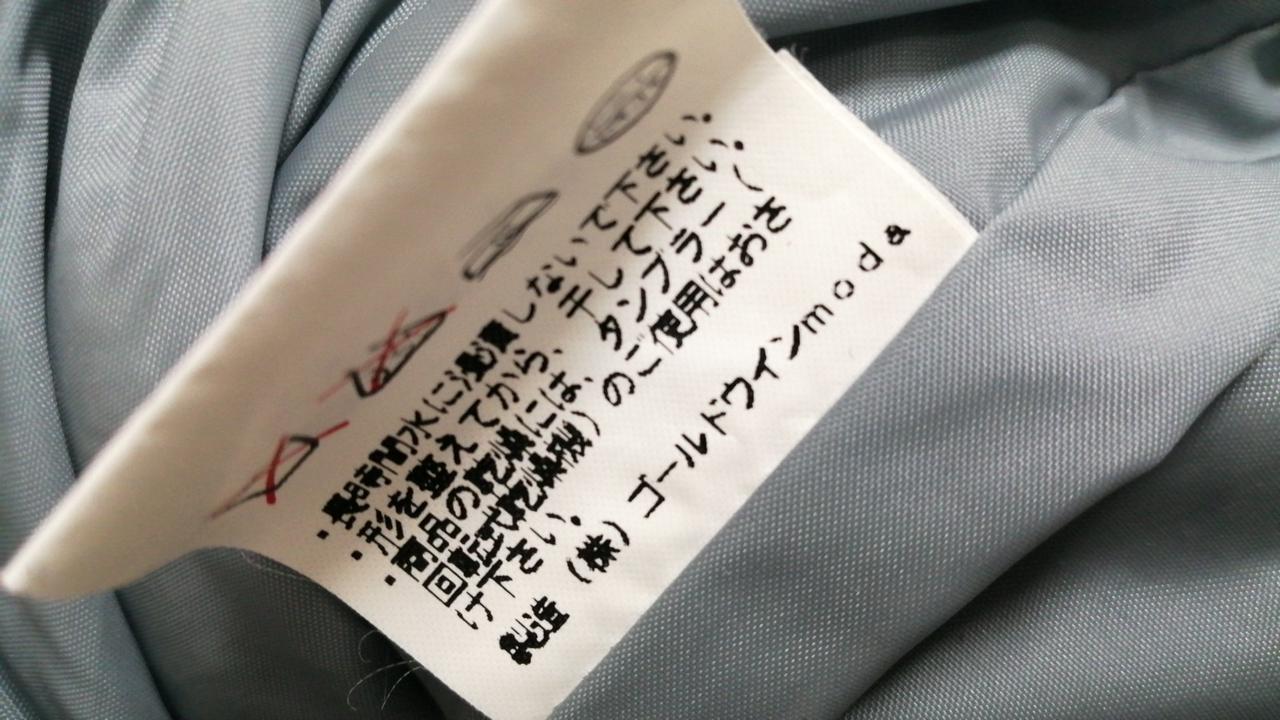 ・長時間水に浸漬しないで下さい。
・形を整えてから、干して下さい。
・商品の乾燥には、タンブラー(
回転式乾燥機)のご使用はおさ
け下さい。
製造 (株)ゴールドウインmoda